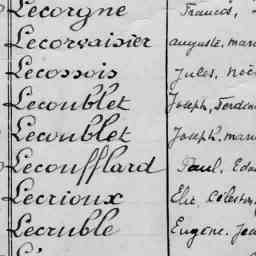 Lecorgne Francis,
Lecorvaisier Auguste, Marie
Lecossois Jules, Noël
Lecoublet Joseph, Ferdin
Lecoublet Joseph, Marie
Lecoufflard Paul, Edou
Lecrioux Elie, Célestin
Lecruble Eugène, Jea